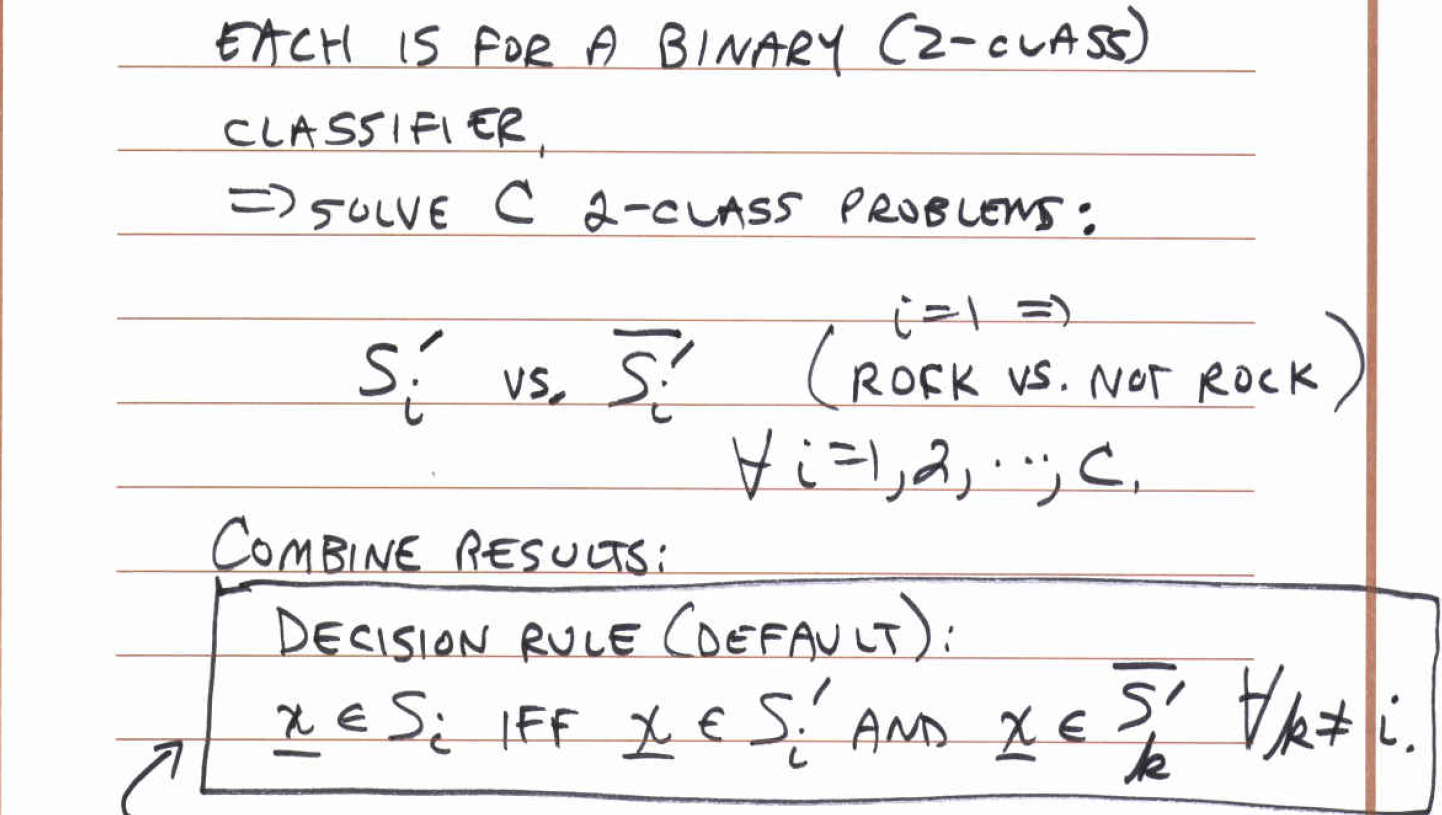 EACH IS FOR A BINARY (2-CLASS)
CLASSIFIER,
=> SOLVE C 2-CLASS PROBLEMS:
i=1 =>
Sᵢ′ vs. S̅ᵢ′ (ROCK VS. NOT ROCK)
∀ i=1,2,...,C,
COMBINE RESULTS:
DECISION RULE (DEFAULT):
x̲ ∈ Sᵢ IFF x̲ ∈ Sᵢ′ AND x̲ ∈ S̅ₖ′ ∀k≠i.